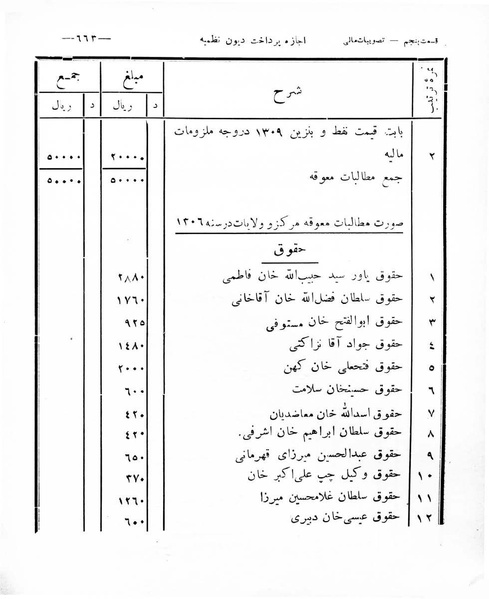 قسمت پنجم — تصویبات مالی اجازه پرداخت دیون نظمیه —٦٦٣—
نمره ترتیب شرح مبلغ جمع
د ریال د ریال
بابت قیمت نفط و بنزین ١٣٠٩ دروجه ملزومات
٢ مالیه ٢٠٠٠٠ ٥٠٠٠٠
جمع مطالبات معوقه ٥٠٠٠٠ ٥٠٠٠٠
صورت مطالبات معوقه مرکز و ولایات در سنه ١٣٠٦
حقوق
١ حقوق یاور سید حبیب‌الله خان فاطمی ٢٨٨٠
٢ حقوق سلطان فضل‌الله خان آقاخانی ١٧٦٠
٣ حقوق ابوالفتح خان مستوفی ٩٢٥
٤ حقوق جواد آقا نزاکتی ١٤٨٠
٥ حقوق فتحعلی خان کهن ٢٠٠٠
٦ حقوق حسینخان سلامت ٦٠٠
٧ حقوق اسدالله خان معاضدیان ٤٢٠
٨ حقوق سلطان ابراهیم خان اشرفی. ٤٢٠
٩ حقوق عبدالحسین میرزای قهرمانی ٦٥٠
١٠ حقوق وکیل چپ علی‌اکبر خان ٣٧٠
١١ حقوق سلطان غلامحسین میرزا ١٢٦٠
١٢ حقوق عیسی‌خان دبیری ٦٠٠